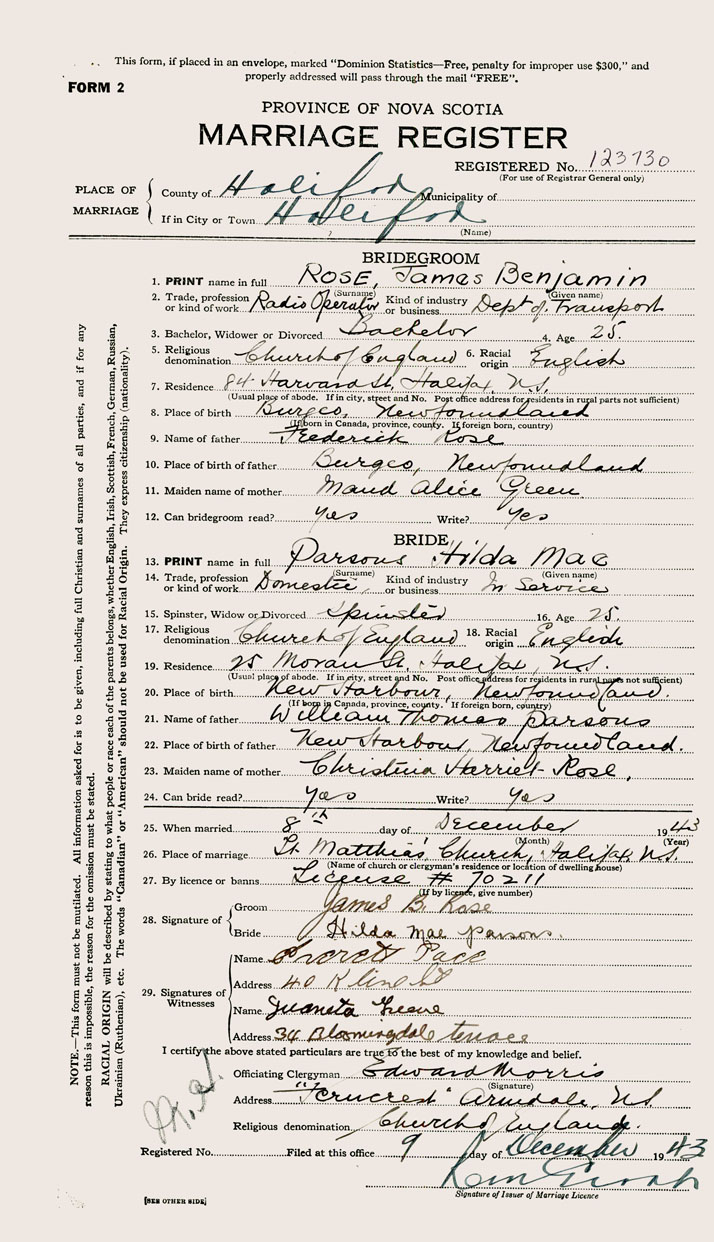 This form, if placed in an envelope, marked "Dominion Statistics—Free, penalty for improper use $300," and
properly addressed will pass through the mail "FREE".
FORM 2
PROVINCE OF NOVA SCOTIA
MARRIAGE REGISTER
REGISTERED No. 123730
(For use of Registrar General only)
PLACE OF MARRIAGE
County of Halifax Municipality of
If in City or Town Halifax
(Name)
BRIDEGROOM
1. PRINT name in full ROSE, James Benjamin
(Surname) (Given name)
2. Trade, profession or kind of work Radio Operator Kind of industry or business Dept of Transport
3. Bachelor, Widower or Divorced Bachelor 4. Age 25.
5. Religious denomination Church of England 6. Racial origin English
7. Residence 84 Harvard St, Halifax N.S.
(Usual place of abode. If in city, street and No. Post office address for residents in rural parts not sufficient)
8. Place of birth Burgeo, Newfoundland
(If born in Canada, province, county. If foreign born, country)
9. Name of father Frederick Rose
10. Place of birth of father Burgeo, Newfoundland
11. Maiden name of mother Maud Alice Green
12. Can bridegroom read? yes Write? yes
BRIDE
13. PRINT name in full Parsons Hilda Mae
(Surname) (Given name)
14. Trade, profession or kind of work Domestic Kind of industry or business In Service
15. Spinster, Widow or Divorced Spinster 16. Age 25.
17. Religious denomination Church of England 18. Racial origin English
19. Residence 25 Moran St. Halifax, N.S.
(Usual place of abode. If in city, street and No. Post office address for residents in rural parts not sufficient)
20. Place of birth New Harbour, Newfoundland.
(If born in Canada, province, county. If foreign born, country)
21. Name of father William Thomas Parsons
22. Place of birth of father New Harbour, Newfoundland.
23. Maiden name of mother Christina Harriet Rose,
24. Can bride read? yes Write? yes
25. When married 8th day of December 1943
(Month) (Year)
26. Place of marriage St. Matthias' Church, Halifax N.S.
(Name of church or clergyman's residence or location of dwelling house)
27. By licence or banns License # 70211
(If by licence, give number)
28. Signature of
Groom James B. Rose
Bride Hilda Mae Parsons.
29. Signatures of Witnesses
Name Everett Pace
Address 40 Kline St
Name Juaneta Greene
Address 34 Bloomingdale terrace
I certify the above stated particulars are true to the best of my knowledge and belief.
Officiating Clergyman Edward Morris
(Signature)
Address "Ferncrest" Armdale, N.S
Religious denomination Church of England.
Registered No. Filed at this office 9 day of December 1943
Signature of Issuer of Marriage Licence
[SEE OTHER SIDE]
NOTE.—This form must not be mutilated. All information asked for is to be given, including full Christian and surnames of all parties, and if for any
reason this is impossible, the reason for the omission must be stated.
RACIAL ORIGIN will be described by stating to what people or race each of the parents belongs, whether English, Irish, Scottish, French, German, Russian,
Ukrainian (Ruthenian), etc. The words "Canadian" or "American" should not be used for Racial Origin. They express citizenship (nationality).